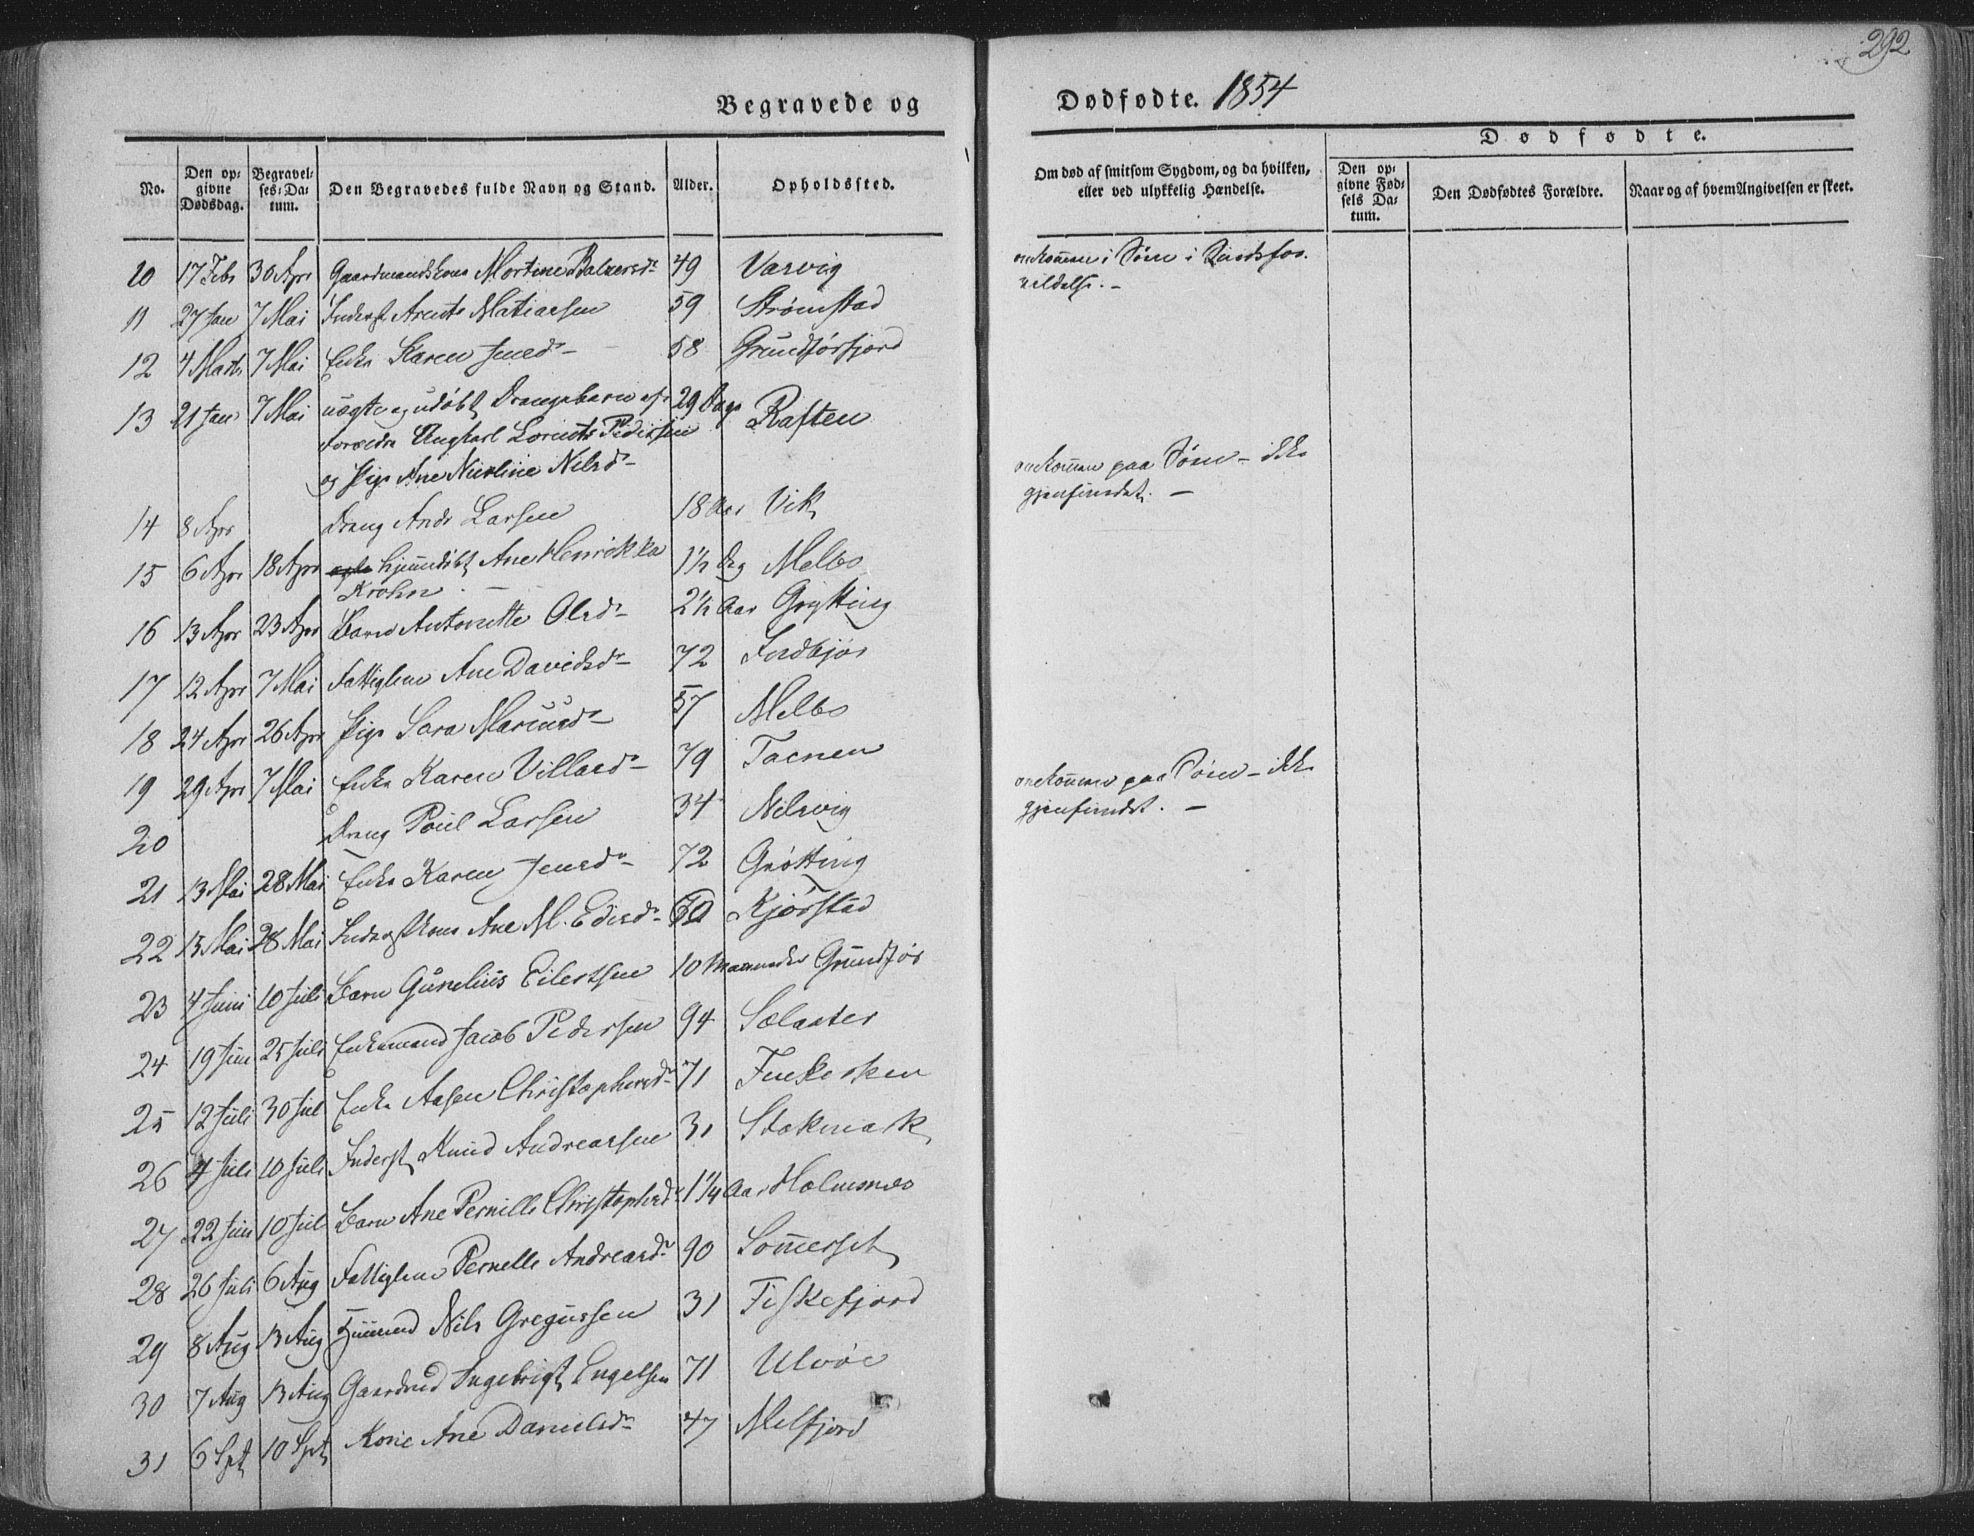 292
Begravede og Dødfødte. 1854
No. Den opgivne Dødsdag. Begravelses-Datum. Den Begravedes fulde Navn og Stand. Alder. Opholdssted. Om død af smitsom Sygdom, og da hvilken, eller ved ulykkelig Hændelse.
Dødfødte.
Den opgivne Fødsels Datum. Den Dødfødtes Forældre. Naar og af hvem Angivelsen er skeet.
10 17 Febr 30 Apr Gaardmandskone Martine 49 Vasvig omkommen i Søen i Sindsfor-
vildelse. -
11 27 Jan 7 Mai Inderst Arents Matiassen 59 Strømstad
12 4 Marts 7 Mai Enke Karen Jensd 58 Grundførfjord
13 21 Jan 7 Mai uægte og udøbt Drengebarn af 29 Dage Raften
Forældre Ungkarl Lorents Pedersen
og Pige Ane Nicoline Nilsd
14 8 Apr Dreng Andr Larsen 18 Aar Vik omkommen paa Søen - ikke
gjenfundet. -
15 6 Apr 18 Apr hjemdøbt Ane Henrikka 1½ Dag Melbo
Krohn
16 13 Apr 23 Apr Barn Antonette Olsd 2½ Aar Grytting
17 12 Apr 7 Mai Fattiglem Ane Davidsd 72
18 24 Apr 26 Apr Pige Sara Marcusd 57 Melbo
19 29 Apr 7 Mai Enke Karen Villasd 79 Taenen
20 Dreng Poul Larsen 34 Nilsvig omkommen paa Søen - ikke
gjenfundet. -
21 13 Mai 28 Mai Enke Karen Jensd 72 Grøtting
22 15 Mai 28 Mai Inderstkone Ane M. 60 Kjørstad
23 4 Juni 10 Juli Barn Gunelius Eilertsen 10 Maaneder Grundfør
24 19 Jun 25 Juli Enkemand Jacob Pedersen 94
25 12 Juli 30 Jul Enke Aasen Christophersd 71
26 4 Juli 10 Juli Inderst Knud Andreassen 31 Stokmark
27 22 Jun 10 Jul Barn Ane Pernille Christophersd 1¼ Aar Holmsnes
28 26 Juli 6 Aug Fattiglem Pernelle Andreasd 90 Sommerset
29 8 Aug 13 Aug Huusmd Nils Gregussen 31 Fiskefjord
30 7 Aug 13 Aug Gaardmd Ingebrigt Engelsen 71 Ulvøe
31 6 Spt 10 Spt Kone Ane Danielsd 47 Melfjord